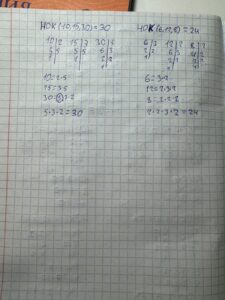 НОК(10,15,30)=30
НОК(6,12,8)=24
10|2 15|3 30|5
5|5 5|5 6|3
1| 1| 2|2
1|
6|3 12|2 8|2
2|2 6|3 4|2
1| 2|2 2|2
1| 1|
10=2·5
15=3·5
30=5·3·2
5·3·2=30
6=3·2
12=2·3·2
8=2·2·2
2·2·3·2=24